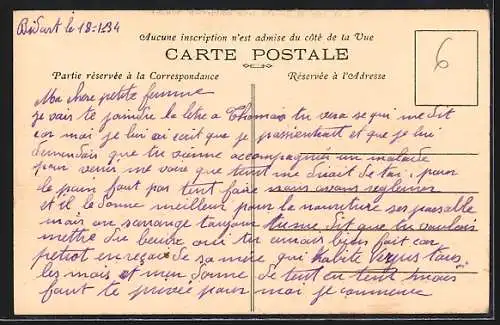 Bidart le 18-1-34
Aucune inscription n'est admise du côté de ta Vue
CARTE POSTALE
Partie réservée à la Correspondance
Réservée à l'Adresse
6
Ma chere petite femme
je vais te joindre la letre a Thomas tu vera se qui me dit
car moi je lui ai ecit que je et que je lui
demandais que tu vienne accompagnier un malade
pour venir me voire que tout me disait de toi, pour
le pain faut pas tout faire nous avons
et il le donne meilleur pour la nouriture ses pasable
mais on sarange toujour tu me dit que tu voulais
mettre du beure oui ten amais bien fait car
petiot en recoi de sa mère qui habite tous
les mois et men donne de tent en tent mais
faut te privée pour moi je commence